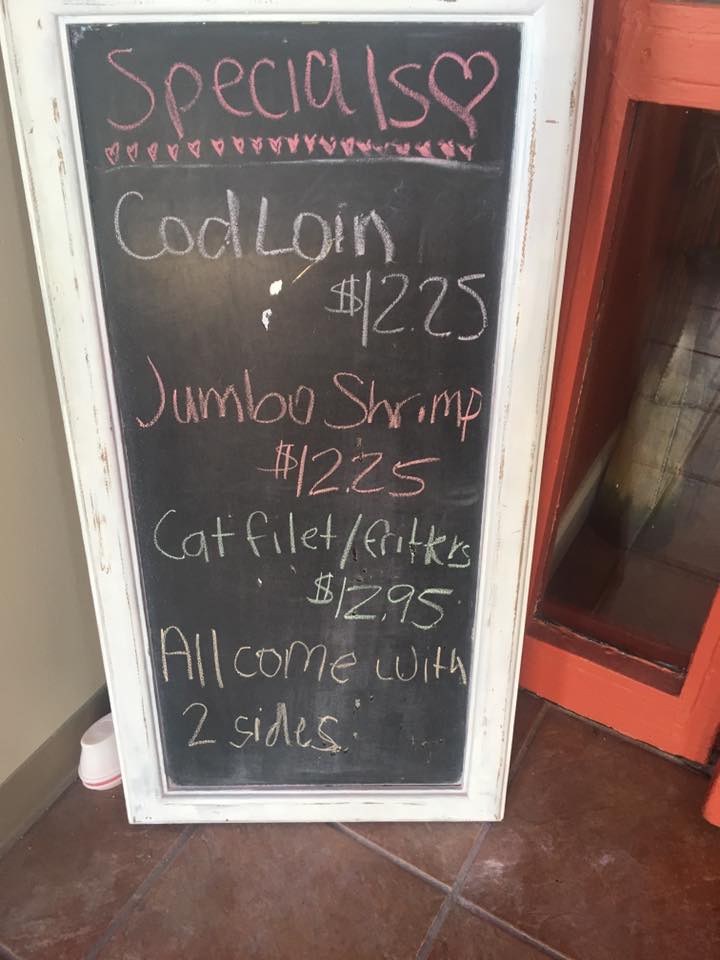 Specials
Cod Loin
$12.25
Jumbo Shrimp
$12.25
Cat filet/fritters
$12.95
All come with
2 sides.